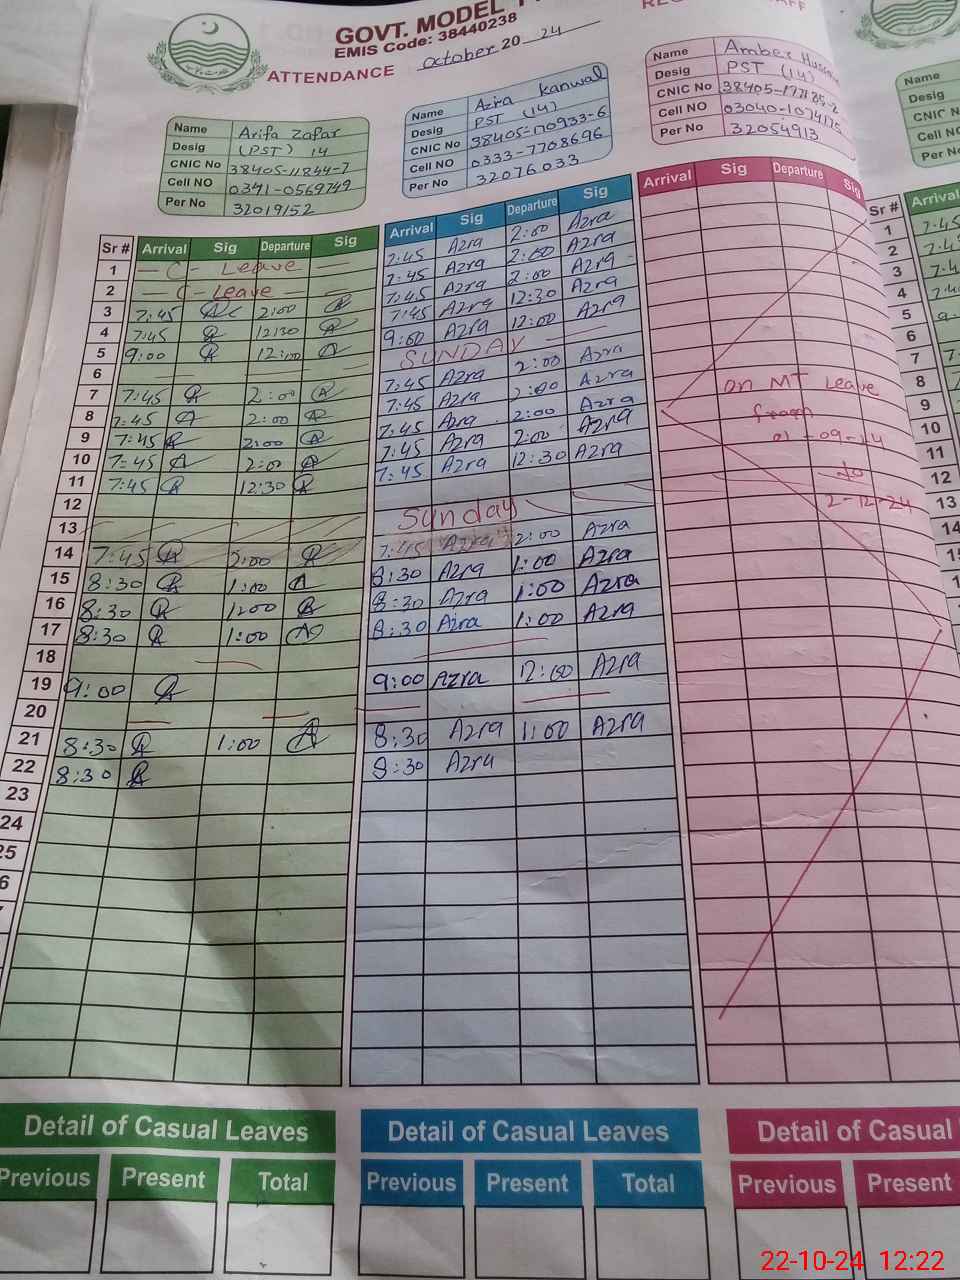 GOVT. MODEL
EMIS Code: 38440238
ATTENDANCE October 20 24
Name Arifa Zafar
Desig (PST) 14
CNIC No 38405-11844-7
Cell NO 0341-0569749
Per No 32019152
Name Azra Kanwal
Desig PST (14)
CNIC No 38405-170933-6
Cell NO 0333-7708696
Per No 32076033
Name Amber
Desig PST (14)
CNIC No
Cell NO
Per No 32054913
Name
Desig
CNIC N
Cell NO
Per No
Sr # Arrival Sig Departure Sig Arrival Sig Departure Sig Arrival Sig Departure Sig Sr # Arrival
1 — C - Leave — 7:45 Azra 2:00 Azra 1 7:45
2 — C - Leave — 7:45 Azra 2:00 Azra 2
3 7:45 2:00 7:45 Azra 2:00 Azra 3
4 7:45 12:30 7:45 Azra 12:30 Azra 4
5 9:00 12:00 9:00 Azra 12:00 Azra 5
6 SUNDAY
7 7:45 2:00 7:45 Azra 2:00 Azra 7
8 7:45 2:00 7:45 Azra 2:00 Azra 8
9 7:45 2:00 7:45 Azra 2:00 Azra 9
10 7:45 2:00 7:45 Azra 2:00 Azra 10
11 7:45 12:30 7:45 Azra 12:30 Azra 11
12 12
13 Sunday 13
14 7:45 2:00 7:45 Azra 2:00 Azra 14
15 8:30 1:00 8:30 Azra 1:00 Azra
16 8:30 1:00 8:30 Azra 1:00 Azra
17 8:30 1:00 8:30 Azra 1:00 Azra
18
19 9:00 9:00 Azra 12:00 Azra
20
21 8:30 1:00 8:30 Azra 1:00 Azra
22 8:30 8:30 Azra
23
24
25
on MT Leave
from
01-09-24
to
2-12-24
Detail of Casual Leaves Detail of Casual Leaves Detail of Casual
Previous Present Total Previous Present Total Previous Present
22-10-24 12:22